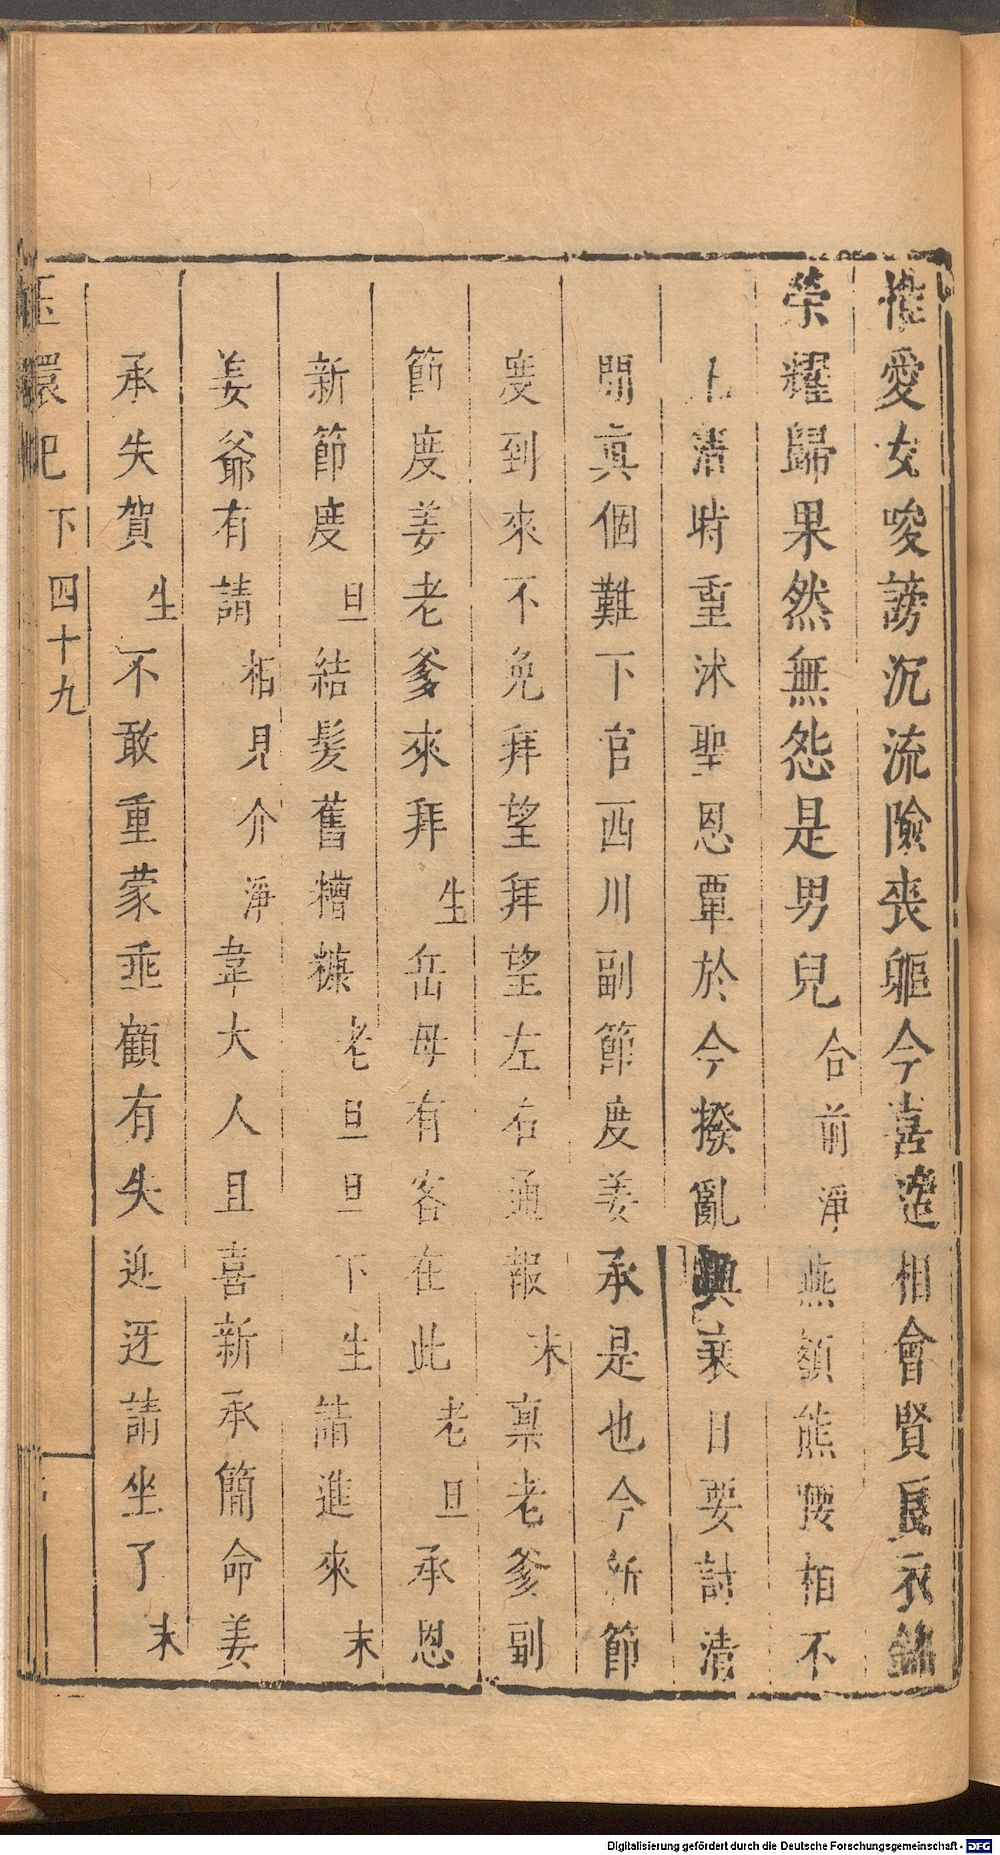 推愛女唆謗沉流險喪軀今喜遭相會賢良衣錦
榮耀歸果然無怨是男兒合前淨燕頷熊腰相不
上清時重沐聖恩覃於今撥亂興衰日要討清
閒真個難下官西川副節度姜承是也今新節
度到來不免拜望拜望左右通報末稟老爹副
節度姜老爹來拜生岳母有客在此老旦承恩
新節度旦結髮舊糟糠老旦旦下生請進來末
姜爺有請相見介淨韋大人且喜新承簡命姜
承失賀生不敢重蒙垂顧有失迎迓請坐了末
玉環記 下 四十九
Digitalisierung gefördert durch die Deutsche Forschungsgemeinschaft - DFG